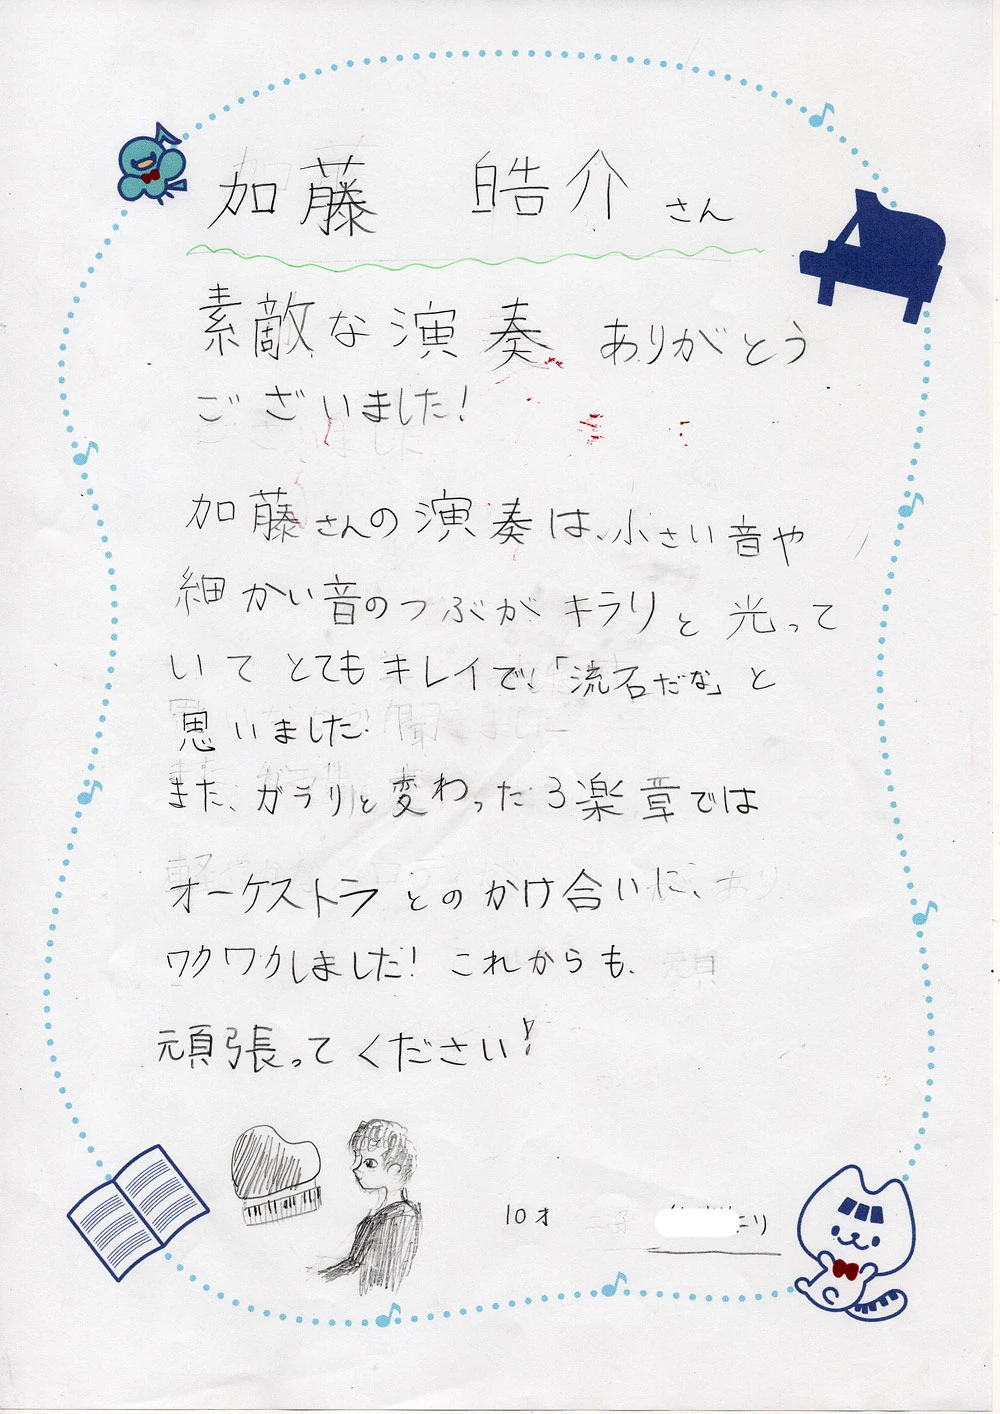 加藤 皓介さん
素敵な演奏ありがとう
ございました!
加藤さんの演奏は、小さい音や
細かい音のつぶがキラリと光って
いてとてもキレイで、「流石だな」と
思いました。
また、ガラリと変わった3楽章では
オーケストラとのかけ合いに、
ワクワクしました!これからも、
頑張ってください!
10才